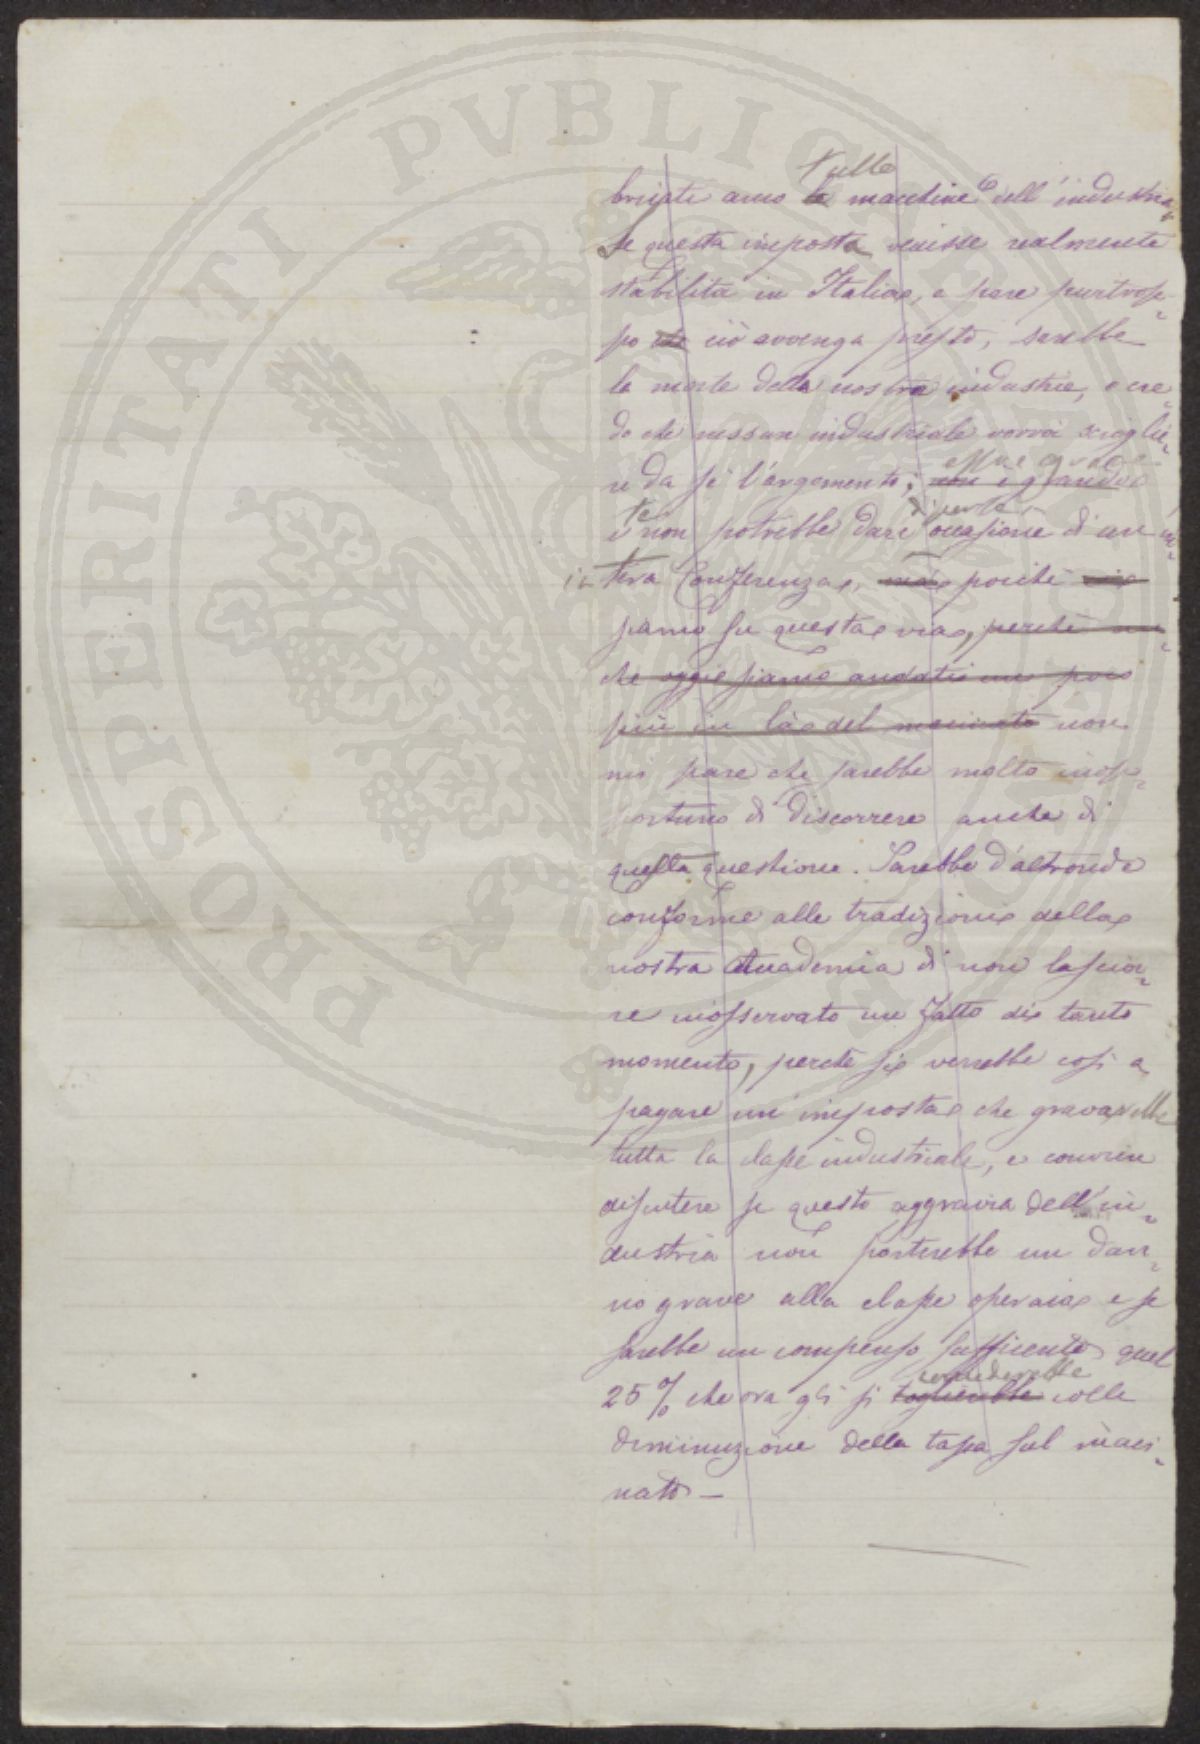 sulle
briati anco le macchine dell'industria.
Se questa imposta venisse realmente
stabilita in Italia, e pare purtrop-
po che ciò avvenga presto, sarebbe
la morte della nostra industria, e cre-
do che nessun industriale vorrà scioglie-
re da sé l'argomento; non è grande
e non potrebbe dare occasione di un' in-
tera Conferenza, ma poiché
siamo su questa via, perché
che oggi siamo andati un poco
più in là del macinato non
mi pare che sarebbe molto inop-
portuno di discorrere anche di
questa questione. Sarebbe d'altronde
conforme alle tradizioni della
nostra Accademia di non lascia-
re inosservato un fatto di tanto
momento, perché si verrebbe così a
pagare un'imposta che grava
tutta la classe industriale, e conviene
discutere se questo aggravio dell'in-
dustria non porterebbe un dan-
no grave alla classe operaia e se
sarebbe un compenso sufficiente quel
concederebbe
25% che ora gli si toglierebbe colla
diminuzione della tassa sul maci-
nato —
PROSPERITATI PVBLICAE